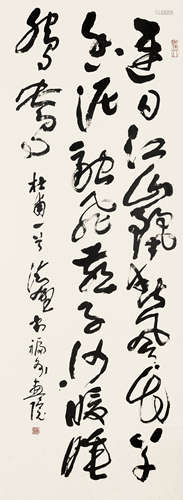 遲日江山麗春風花草
香泥融飛燕子沙暖睡
鴛鴦 杜甫一首
畫院